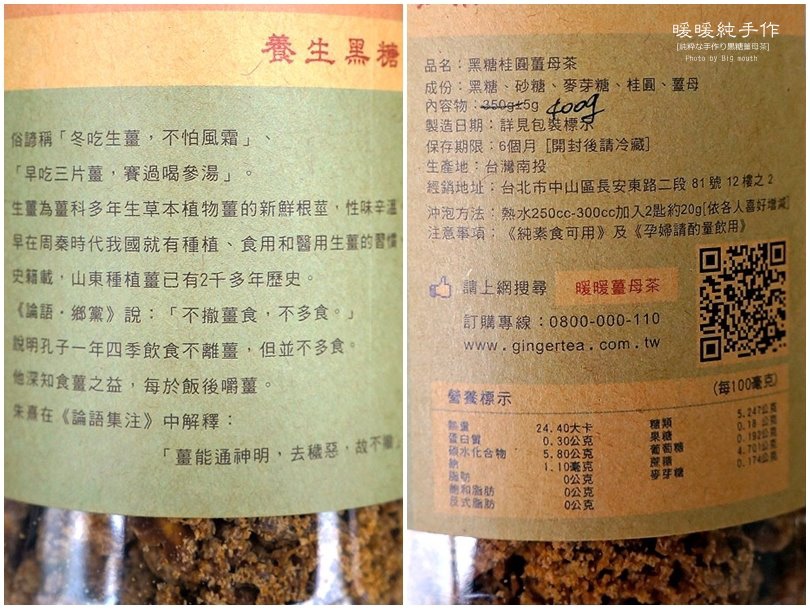 養生黑糖
俗諺稱「冬吃生薑，不怕風霜」、
「早吃三片薑，賽過喝參湯」。
生薑為薑科多年生草本植物薑的新鮮根莖，性味辛溫，
早在周秦時代我國就有種植、食用和醫用生薑的習慣，
史籍載，山東種植薑已有2千多年歷史。
《論語·鄉黨》說：「不撤薑食，不多食。」
說明孔子一年四季飲食不離薑，但並不多食。
他深知食薑之益，每於飯後嚼薑。
朱熹在《論語集注》中解釋：
「薑能通神明，去穢惡，故不撤」
暖暖純手作
[純粋な手作り黑糖薑母茶]
Photo by Big mouth
品名：黑糖桂圓薑母茶
成份：黑糖、砂糖、麥芽糖、桂圓、薑母
內容物：350g±5g 400g
製造日期：詳見包裝標示
保存期限：6個月 [開封後請冷藏]
生產地：台灣南投
經銷地址：台北市中山區長安東路二段 81號 12樓之2
沖泡方法：熱水250cc-300cc加入2匙約20g[依各人喜好增減]
注意事項：《純素食可用》及《孕婦請酌量飲用》
請上網搜尋 暖暖薑母茶
訂購專線：0800-000-110
www.gingertea.com.tw
營養標示 (每100毫克)
熱量 24.40大卡
蛋白質 0.30公克
碳水化合物 5.80公克
鈉 1.10毫克
脂肪 0公克
飽和脂肪 0公克
反式脂肪 0公克
糖類 5.247公克
果糖 0.18 公克
葡萄糖 0.192公克
蔗糖 4.701公克
麥芽糖 0.174公克